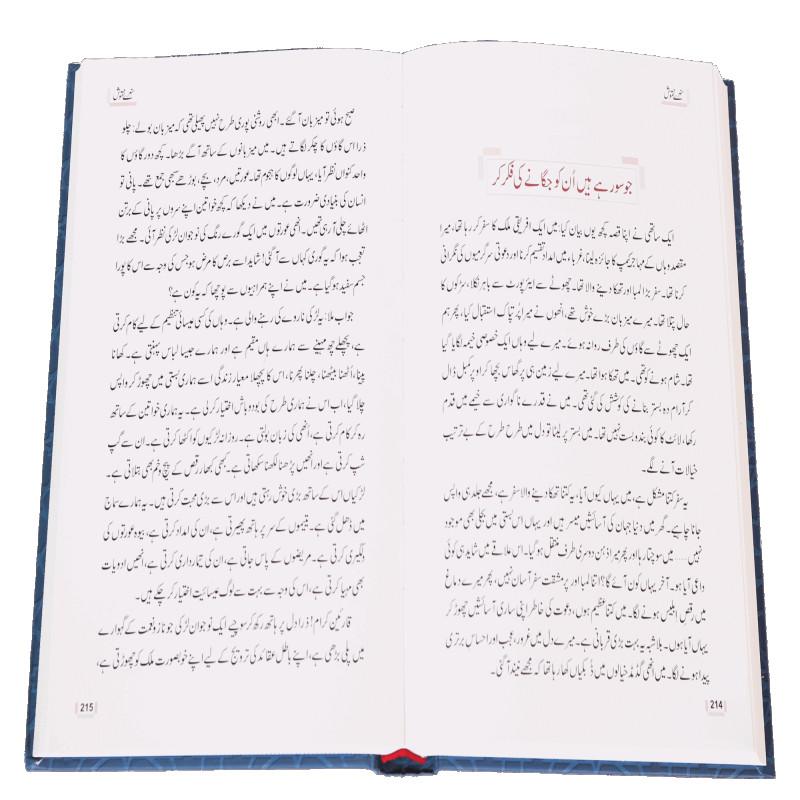 سنہرے نقوش
جو سو رہے ہیں اُن کو جگانے کی فکر کر
ایک ساتھی نے اپنا قصہ کچھ یوں بیان کیا، میں ایک افریقی ملک کا سفر کر رہا تھا، میرا
مقصد وہاں کے مہاجر کیمپ کا جائزہ لینا، غرباء میں امداد تقسیم کرنا اور دعوتی سرگرمیوں کی نگرانی
کرنا تھا۔ سفر بڑا لمبا اور تھکا دینے والا تھا۔ چھوٹے سے ایئرپورٹ سے باہر نکلا، سڑکوں کا
حال پتلا تھا۔ میرے میزبان بڑے خوش تھے، انھوں نے میرا پُرتپاک استقبال کیا، پھر ہم
ایک چھوٹے سے گاؤں کی طرف روانہ ہوئے۔ میرے لیے وہاں ایک خصوصی خیمہ لگایا گیا
تھا۔ شام ہونے کو تھی۔ میں تھکا ہوا تھا۔ میرے لیے زمین ہی پر گھاس بچھا کر اوپر کمبل ڈال
کر آرام دہ بستر بنانے کی کوشش کی گئی تھی۔ میں نے قدرے ناگواری سے خیمے میں قدم
رکھا، لائٹ کا کوئی بندوبست نہیں تھا۔ میں بستر پر لیٹا تو دل میں طرح طرح کے بے ترتیب
خیالات آنے لگے۔
یہ سفر کتنا مشکل ہے، میں یہاں کیوں آیا، یہ کتنا تھکا دینے والا سفر ہے، مجھے جلد ہی واپس
جانا چاہیے۔ گھر میں دنیا جہان کی آسائشیں میسر ہیں اور یہاں اس بستی میں بجلی بھی موجود
نہیں...... میں سوچتا رہا اور پھر میرا ذہن دوسری طرف منتقل ہو گیا۔ اس علاقے میں شاید ہی کوئی
داعی آیا ہو۔ آخر یہاں کون آئے گا؟ اتنا لمبا اور پر مشقت سفر آسان نہیں، پھر میرے دماغ
میں رقصِ ابلیس ہونے لگا۔ میں کتنا عظیم ہوں، دعوت کی خاطر اپنی ساری آسائشیں چھوڑ کر
یہاں آیا ہوں۔ بلاشبہ یہ بہت بڑی قربانی ہے۔ میرے دل میں غرور، عجب اور احساس برتری
پیدا ہونے لگا۔ میں انھی گڈمڈ خیالوں میں ڈبکیاں کھا رہا تھا کہ مجھے نیند آ گئی۔
214
سنہرے نقوش
صبح ہوئی تو میزبان آ گئے۔ ابھی روشنی پوری طرح نہیں پھیلی تھی کہ میزبان بولے: چلو
ذرا اس گاؤں کا چکر لگاتے ہیں۔ میں میزبانوں کے ساتھ آگے بڑھا۔ کچھ دور گاؤں کا
واحد کنواں نظر آیا، یہاں لوگوں کا ہجوم تھا۔ عورتیں، مرد، بچے، بوڑھے سبھی جمع تھے۔ پانی تو
انسان کی بنیادی ضرورت ہے۔ میں نے دیکھا کہ کچھ خواتین اپنے سروں پر پانی کے برتن
اٹھائے چلی آ رہی تھیں۔ انھی عورتوں میں ایک گورے رنگ کی نوجوان لڑکی نظر آئی۔ مجھے بڑا
تعجب ہوا کہ یہ گوری کہاں سے آ گئی! شاید اسے برص کا مرض ہو جس کی وجہ سے اس کا پورا
جسم سفید ہو گیا ہے۔ میں نے اپنے ہمراہیوں سے پوچھا کہ یہ کون ہے؟
جواب ملا: یہ لڑکی ناروے کی رہنے والی ہے۔ وہاں کی کسی عیسائی تنظیم کے لیے کام کرتی
ہے، پچھلے چھ مہینے سے ہمارے ہاں مقیم ہے اور ہمارے جیسا لباس پہنتی ہے۔ کھانا
پینا، اُٹھنا بیٹھنا، چلنا پھرنا، اس کا پچھلا معیارِ زندگی اسے ہماری بستی میں چھوڑ کر واپس
چلا گیا، اب اس نے ہماری طرح کی بودوباش اختیار کر لی ہے۔ یہ ہماری خواتین کے ساتھ
رہ کر کام کرتی ہے، انھی کی زبان بولتی ہے۔ روزانہ لڑکیوں کو اکٹھا کرتی ہے۔ ان سے گپ
شپ کرتی ہے اور انھیں پڑھنا لکھنا سکھاتی ہے۔ کبھی کبھار رقص کے پیچ و خم بھی بتلاتی ہے۔
لڑکیاں اس کے ساتھ بڑی خوش رہتی ہیں اور اس سے بڑی محبت کرتی ہیں۔ یہ ہمارے سماج
میں ڈھل گئی ہے۔ یتیموں کے سر پر ہاتھ پھیرتی ہے، ان کی امداد کرتی ہے، بیوہ عورتوں کی
دلگیری کرتی ہے۔ مریضوں کے پاس جاتی ہے، ان کی تیمارداری کرتی ہے، انھیں ادویات
بھی مہیا کرتی ہے، اس کی وجہ سے بہت سے لوگ عیسائیت اختیار کر چکے ہیں۔
قارئین کرام! ذرا دل پر ہاتھ رکھ کر سوچیے ایک نوجوان لڑکی جو ناز و نعمت کے گہوارے
میں پلی بڑھی ہے، اپنے باطل عقائد کی ترویج کے لیے اپنے خوبصورت ملک کو چھوڑتی ہے،
215